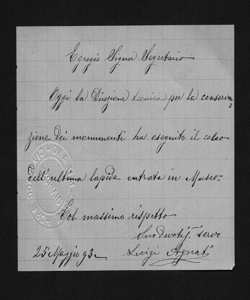 Egregio Signor Segretario
Oggi la Direzione tecnica per la conserva-
zione dei monumenti ha eseguito il calco
dell'ultima lapide entrata in Museo.
Col massimo rispetto
Suo devotis. servo
25 Maggio 93. Luigi